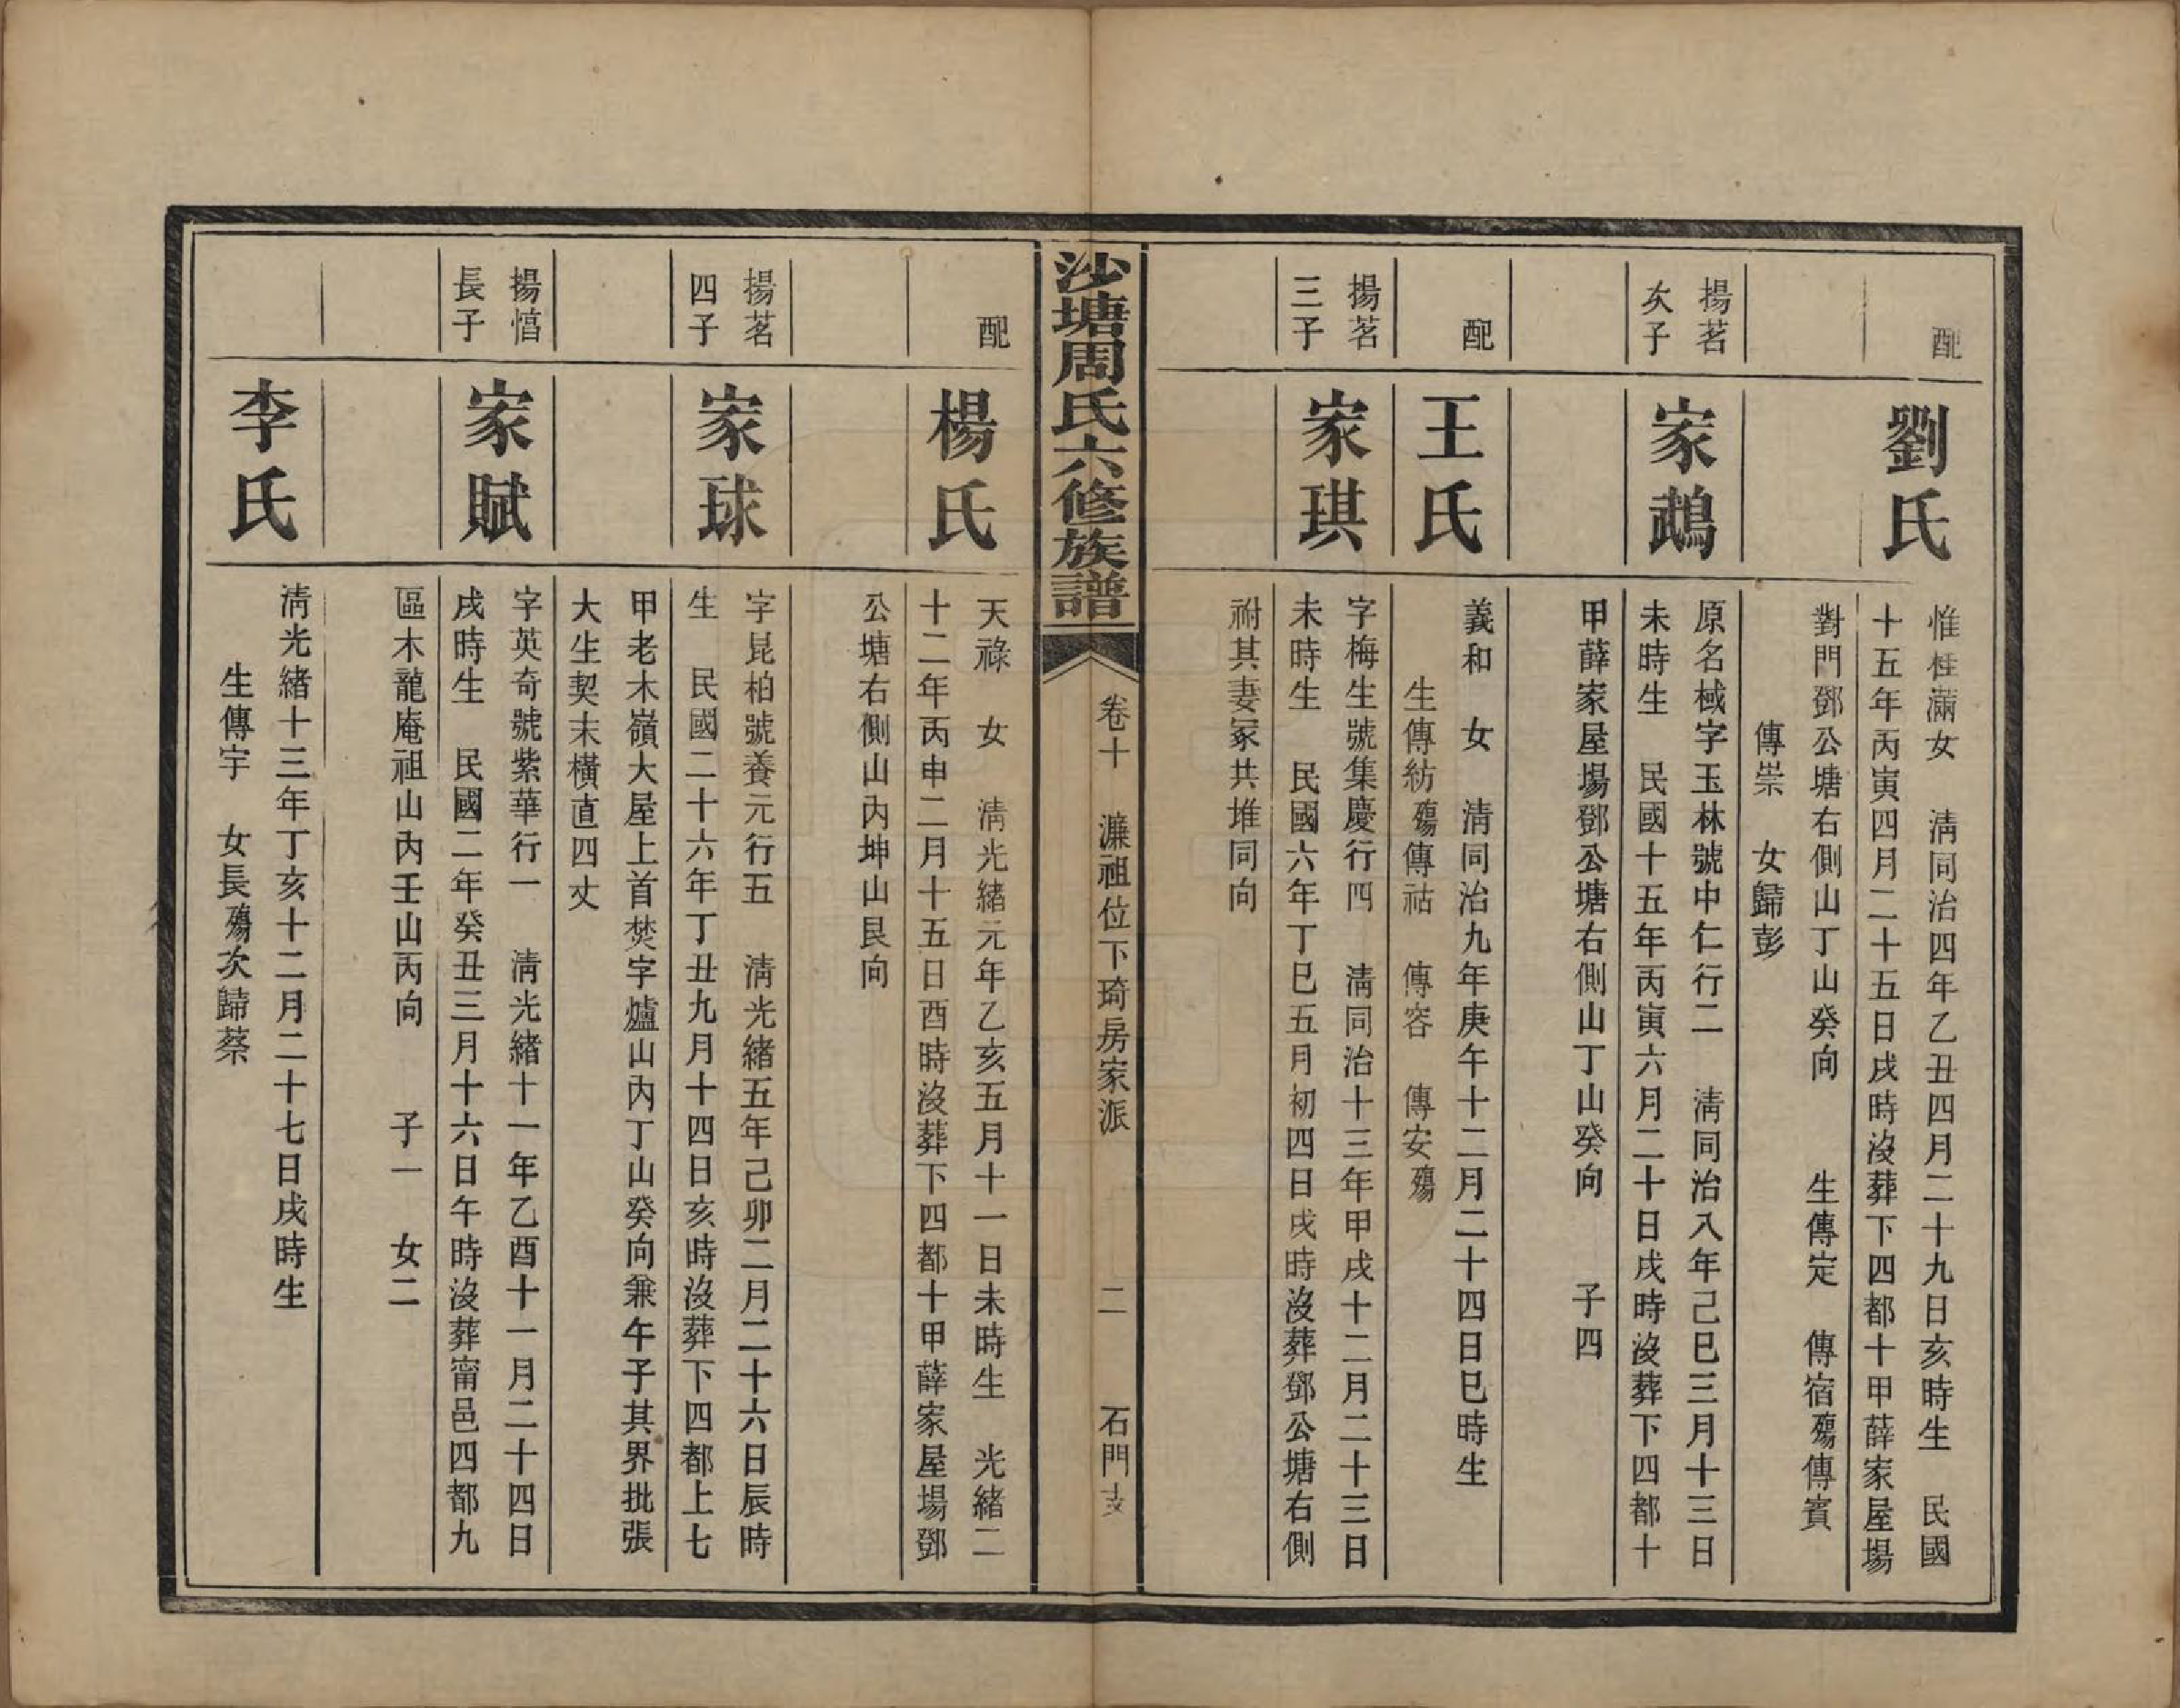 配
劉氏
惟桂滿女　清同治四年乙丑四月二十九日亥時生　民國
十五年丙寅四月二十五日戌時沒葬下四都十甲薛家屋場
對門鄧公塘右側山丁山癸向　　生傳定　傳宿殤傳賓
傳崇　女歸彭
揚茗
次子
家鵡
原名棫字玉林號中仁行二　清同治八年己巳三月十三日
未時生　民國十五年丙寅六月二十日戌時沒葬下四都十
甲薛家屋場鄧公塘右側山丁山癸向　　子四
配
王氏
義和　女　清同治九年庚午十二月二十四日巳時生
生傳紡殤傳祜　傳容　傳安殤
揚茗
三子
家琪
字梅生號集慶行四　清同治十三年甲戌十二月二十三日
未時生　民國六年丁巳五月初四日戌時沒葬鄧公塘右側
祔其妻冢共堆同向
沙塘周氏六修族譜
卷十　濂祖位下琦房家派　　二　　石門支
配
楊氏
天祿　女　清光緒元年乙亥五月十一日未時生　光緒二
十二年丙申二月十五日酉時沒葬下四都十甲薛家屋場鄧
公塘右側山內坤山艮向
揚茗
四子
家球
字昆柏號養元行五　清光緒五年己卯二月二十六日辰時
生　民國二十六年丁丑九月十四日亥時沒葬下四都上七
甲老木嶺大屋上首焚字爐山內丁山癸向兼午子其界批張
大生契未橫直四丈
揚愷
長子
家賦
字英奇號紫華行一　清光緒十一年乙酉十一月二十四日
戌時生　民國二年癸丑三月十六日午時沒葬甯邑四都九
區木龍庵祖山內壬山丙向　　子一　女二
李氏
清光緒十三年丁亥十二月二十七日戌時生
生傳宇　女長殤次歸蔡